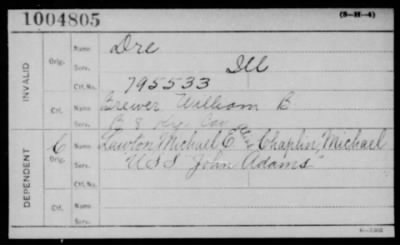 1004805
(3-H-4)
INVALID
Orig.
Name Dre
Serv. Ill
Ctf. No. 795533
Ctf.
Name Brewer William B
Serv. B 8 Ky Cav
DEPENDENT
C
Orig.
Name Lawton, Michael C alias Chaplin, Michael
Serv. "U S S John Adams"
Ctf. No.
Ctf.
Name
Serv.